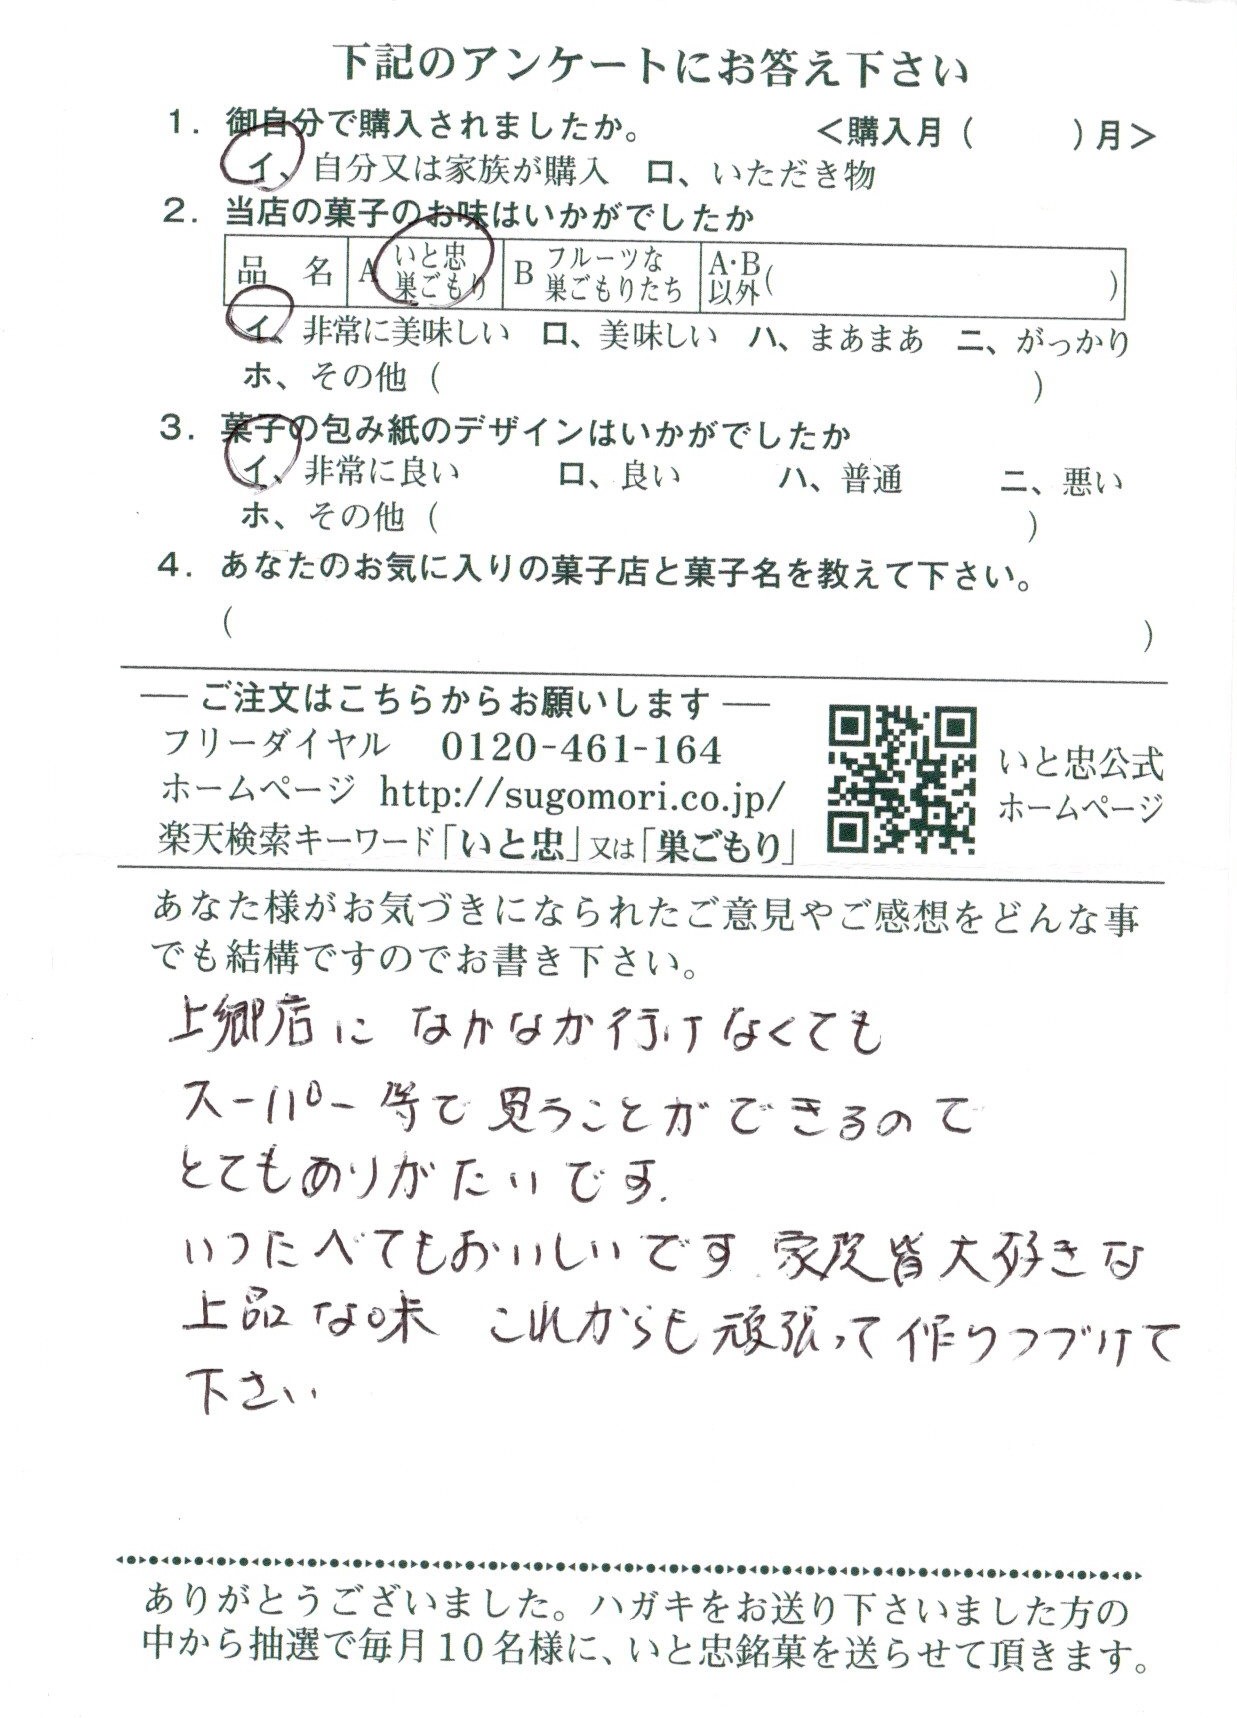 下記のアンケートにお答え下さい
1. 御自分で購入されましたか。 <購入月( )月>
イ、自分又は家族が購入 ロ、いただき物
2. 当店の菓子のお味はいかがでしたか
品 名 A いと忠巣ごもり B フルーツな巣ごもりたち A・B以外( )
イ、非常に美味しい ロ、美味しい ハ、まあまあ ニ、がっかり
ホ、その他( )
3. 菓子の包み紙のデザインはいかがでしたか
イ、非常に良い ロ、良い ハ、普通 ニ、悪い
ホ、その他( )
4. あなたのお気に入りの菓子店と菓子名を教えて下さい。
( )
― ご注文はこちらからお願いします ―
フリーダイヤル 0120-461-164
ホームページ http://sugomori.co.jp/
楽天検索キーワード「いと忠」又は「巣ごもり」
いと忠公式
ホームページ
あなた様がお気づきになられたご意見やご感想をどんな事
でも結構ですのでお書き下さい。
上郷店に なかなか行けなくても
スーパー等で買うことができるので
とてもありがたいです.
いつたべてもおいしいです.家族皆大好きな
上品な味 これからも頑張って作りつづけて
下さい
ありがとうございました。ハガキをお送り下さいました方の
中から抽選で毎月10名様に、いと忠銘菓を送らせて頂きます。